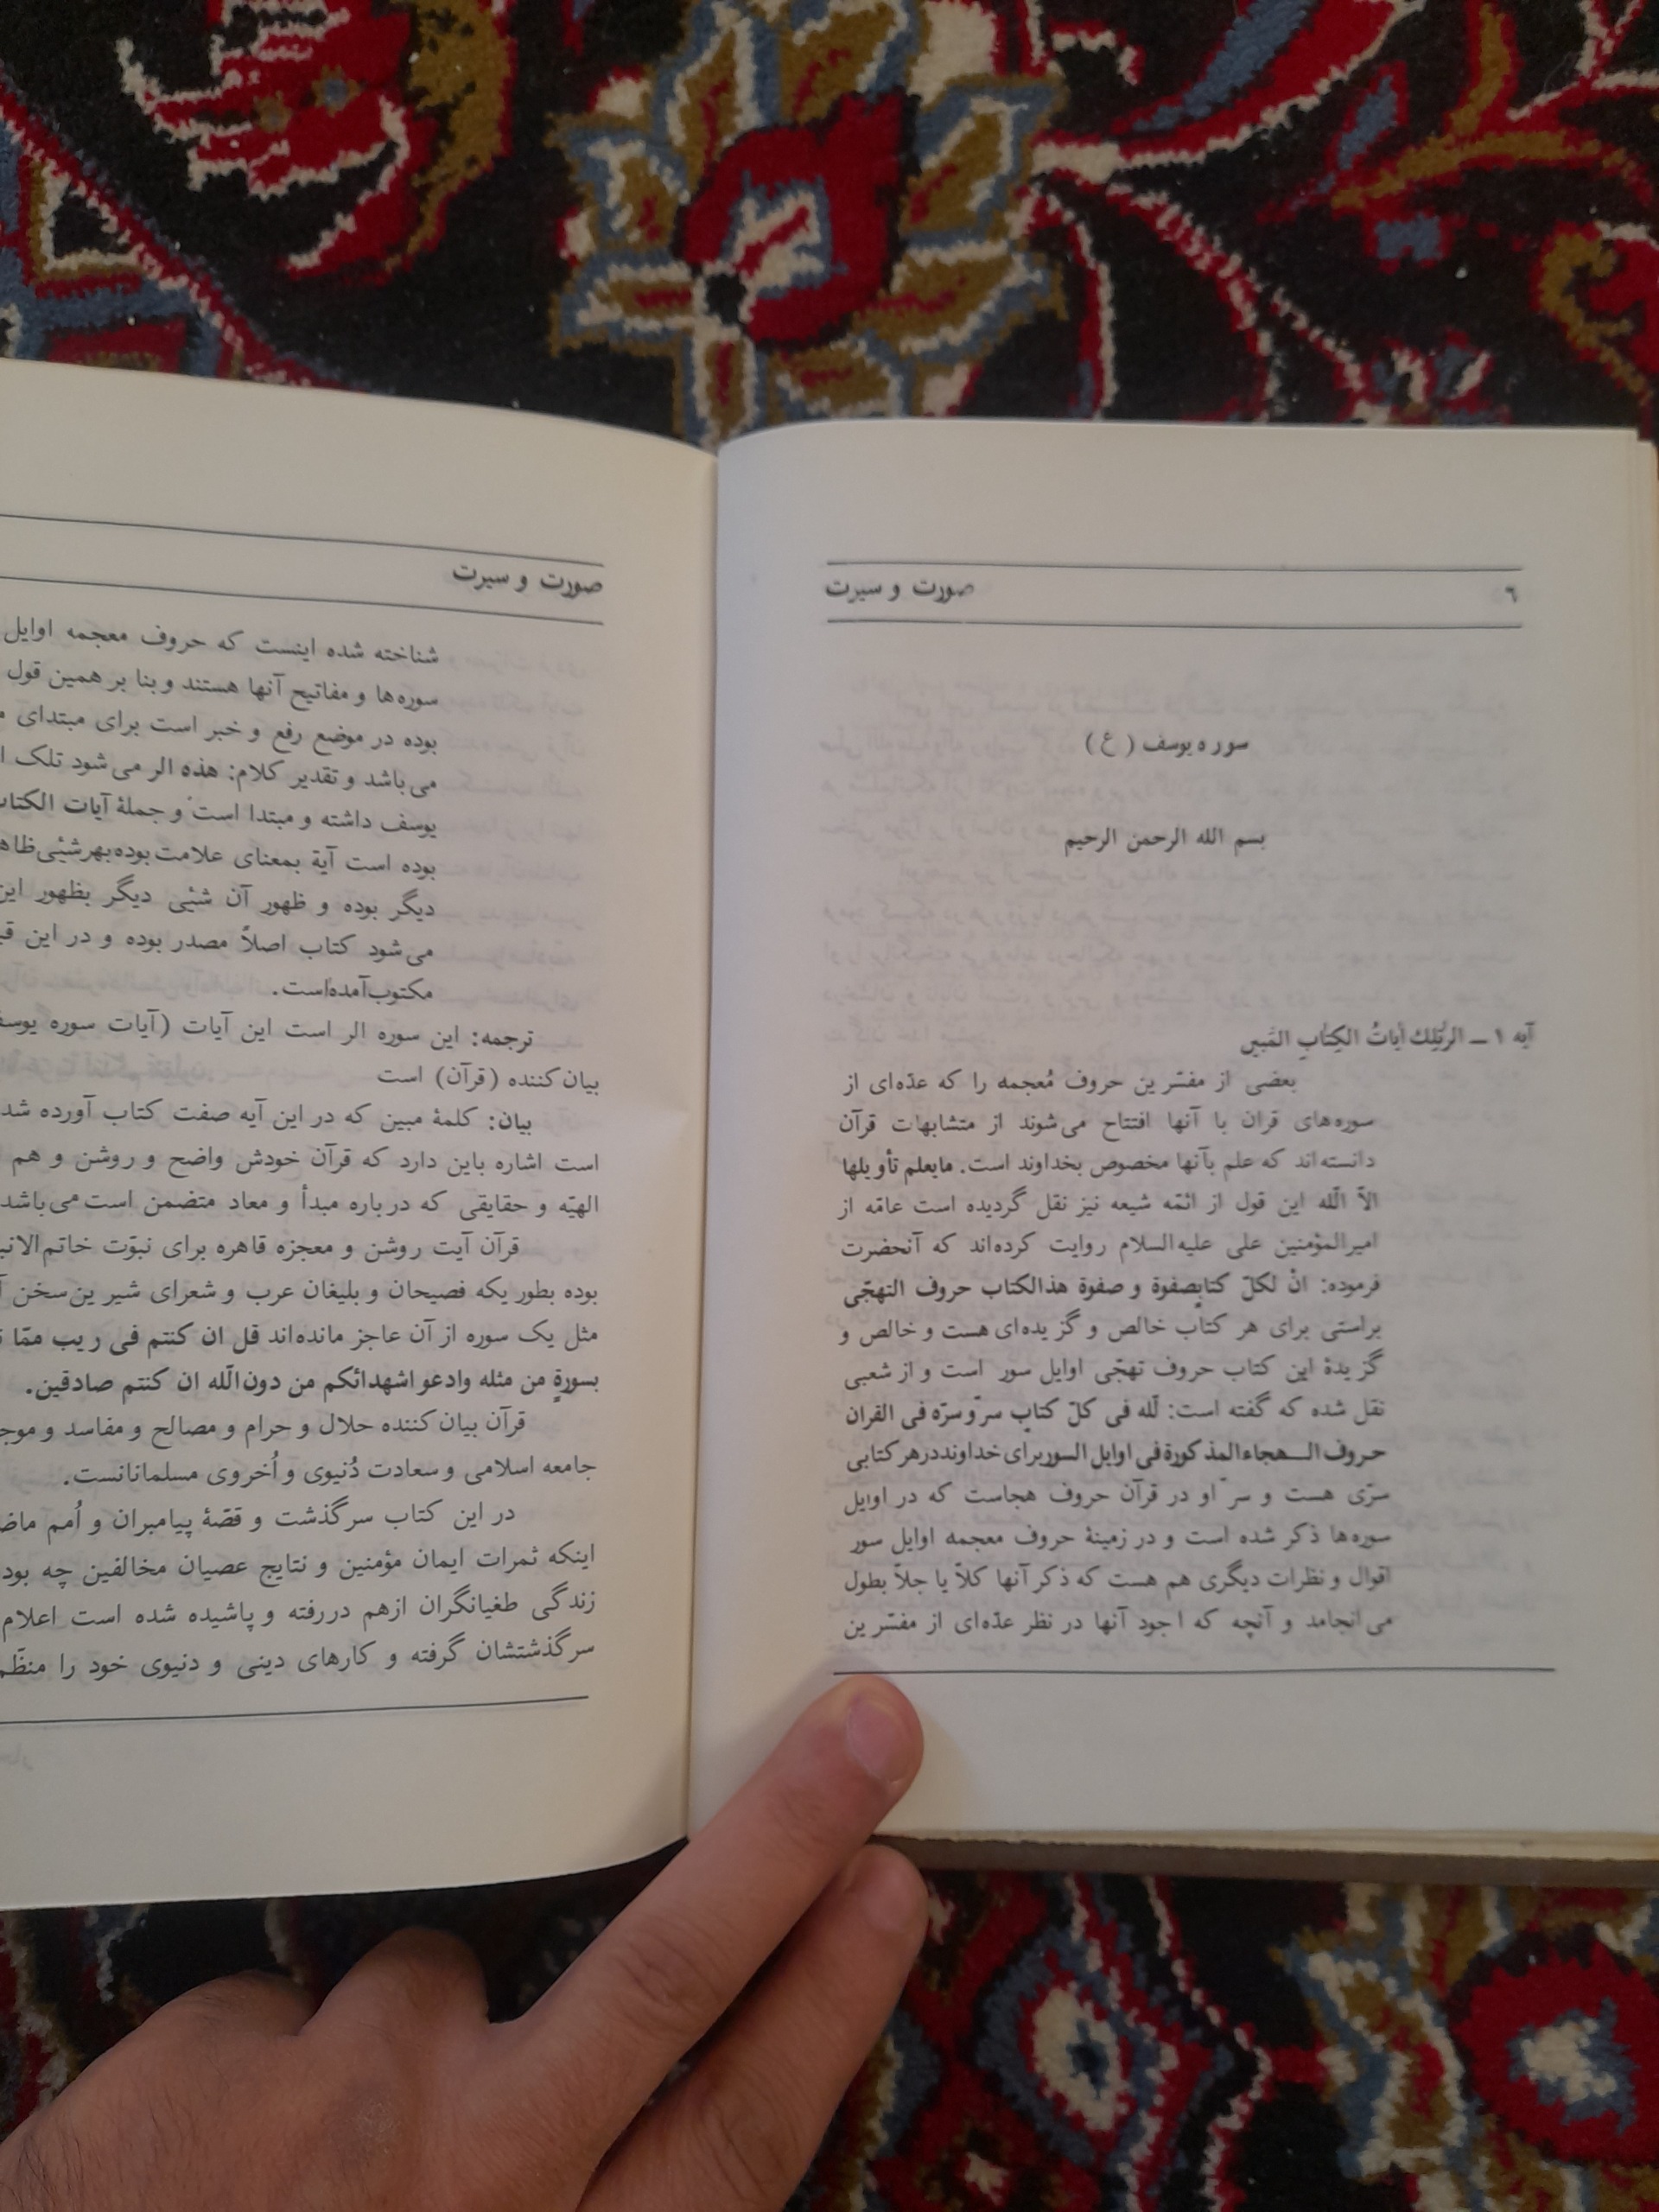 ٦
صورت و سیرت
سوره یوسف (ع)
بسم الله الرحمن الرحیم
آیه ۱ـ الرتِلكَ آیاتُ الکِتابِ المُبینِ
بعضی از مفسّرین حروف مُعجمه را که عدّه‌ای از
سوره‌های قران با آنها افتتاح می‌شوند از متشابهات قرآن
دانسته‌اند که علم بآنها مخصوص بخداوند است. مایعلم تأویلها
الاّ اللّه این قول از ائمّه شیعه نیز نقل گردیده است عامّه از
امیرالمؤمنین علی علیه‌السلام روایت کرده‌اند که آنحضرت
فرموده: انّ لکلّ کتابٍصفوة و صفوة هذالکتاب حروف التهجّی
براستی برای هر کتاب خالص و گزیده‌ای هست و خالص و
گزیدۀ این کتاب حروف تهجّی اوایل سور است و از شعبی
نقل شده که گفته است: للّه فی کلّ کتابٍ سرّ و سرّه فی القران
حروف الـهجاء المذکورة فی اوایل السور برای خداوند در هر کتابی
سرّی هست و سرّ او در قرآن حروف هجاست که در اوایل
سوره‌ها ذکر شده است و در زمینۀ حروف معجمه اوایل سور
اقوال و نظرات دیگری هم هست که ذکر آنها کلاّ یا جلاّ بطول
می‌انجامد و آنچه که اجود آنها در نظر عدّه‌ای از مفسّرین
صورت و سیرت
شناخته شده اینست که حروف معجمه اوایل
سوره‌ها و مفاتیح آنها هستند و بنا بر همین قول
بوده در موضع رفع و خبر است برای مبتدای
می‌باشد و تقدیر کلام: هذه الر می‌شود تلک
یوسف داشته و مبتدا است و جملۀ آیات
بوده است آیة بمعنای علامت بوده بهر شیئی
دیگر بوده و ظهور آن شیئی دیگر بظهور
می‌شود کتاب اصلاً مصدر بوده و در این
مکتوب آمده‌است.
ترجمه: این سوره الر است این آیات (آیات سوره
بیان کننده (قرآن) است
بیان: کلمۀ مبین که در این آیه صفت کتاب آورده
است اشاره باین دارد که قرآن خودش واضح و روشن و هم
الهیّه و حقایقی که درباره مبدأ و معاد متضمن است می‌باشد
قرآن آیت روشن و معجزه قاهره برای نبوّت
بوده بطوریکه فصیحان و بلیغان عرب و شعرای شیرین سخن
مثل یک سوره از آن عاجز مانده‌اند قل ان کنتم فی ریب ممّا
بسورةٍ من مثله وادعو اشهدائکم من دون اللّه ان کنتم صادقین.
قرآن بیان کننده حلال و حرام و مصالح و مفاسد و
جامعه اسلامی و سعادت دُنیوی و اُخروی مسلمانانست.
در این کتاب سرگذشت و قصّۀ پیامبران و اُمم
اینکه ثمرات ایمان مؤمنین و نتایج عصیان مخالفین چه
زندگی طغیانگران ازهم دررفته و پاشیده شده است اعلام
سرگذشتشان گرفته و کارهای دینی و دنیوی خود را